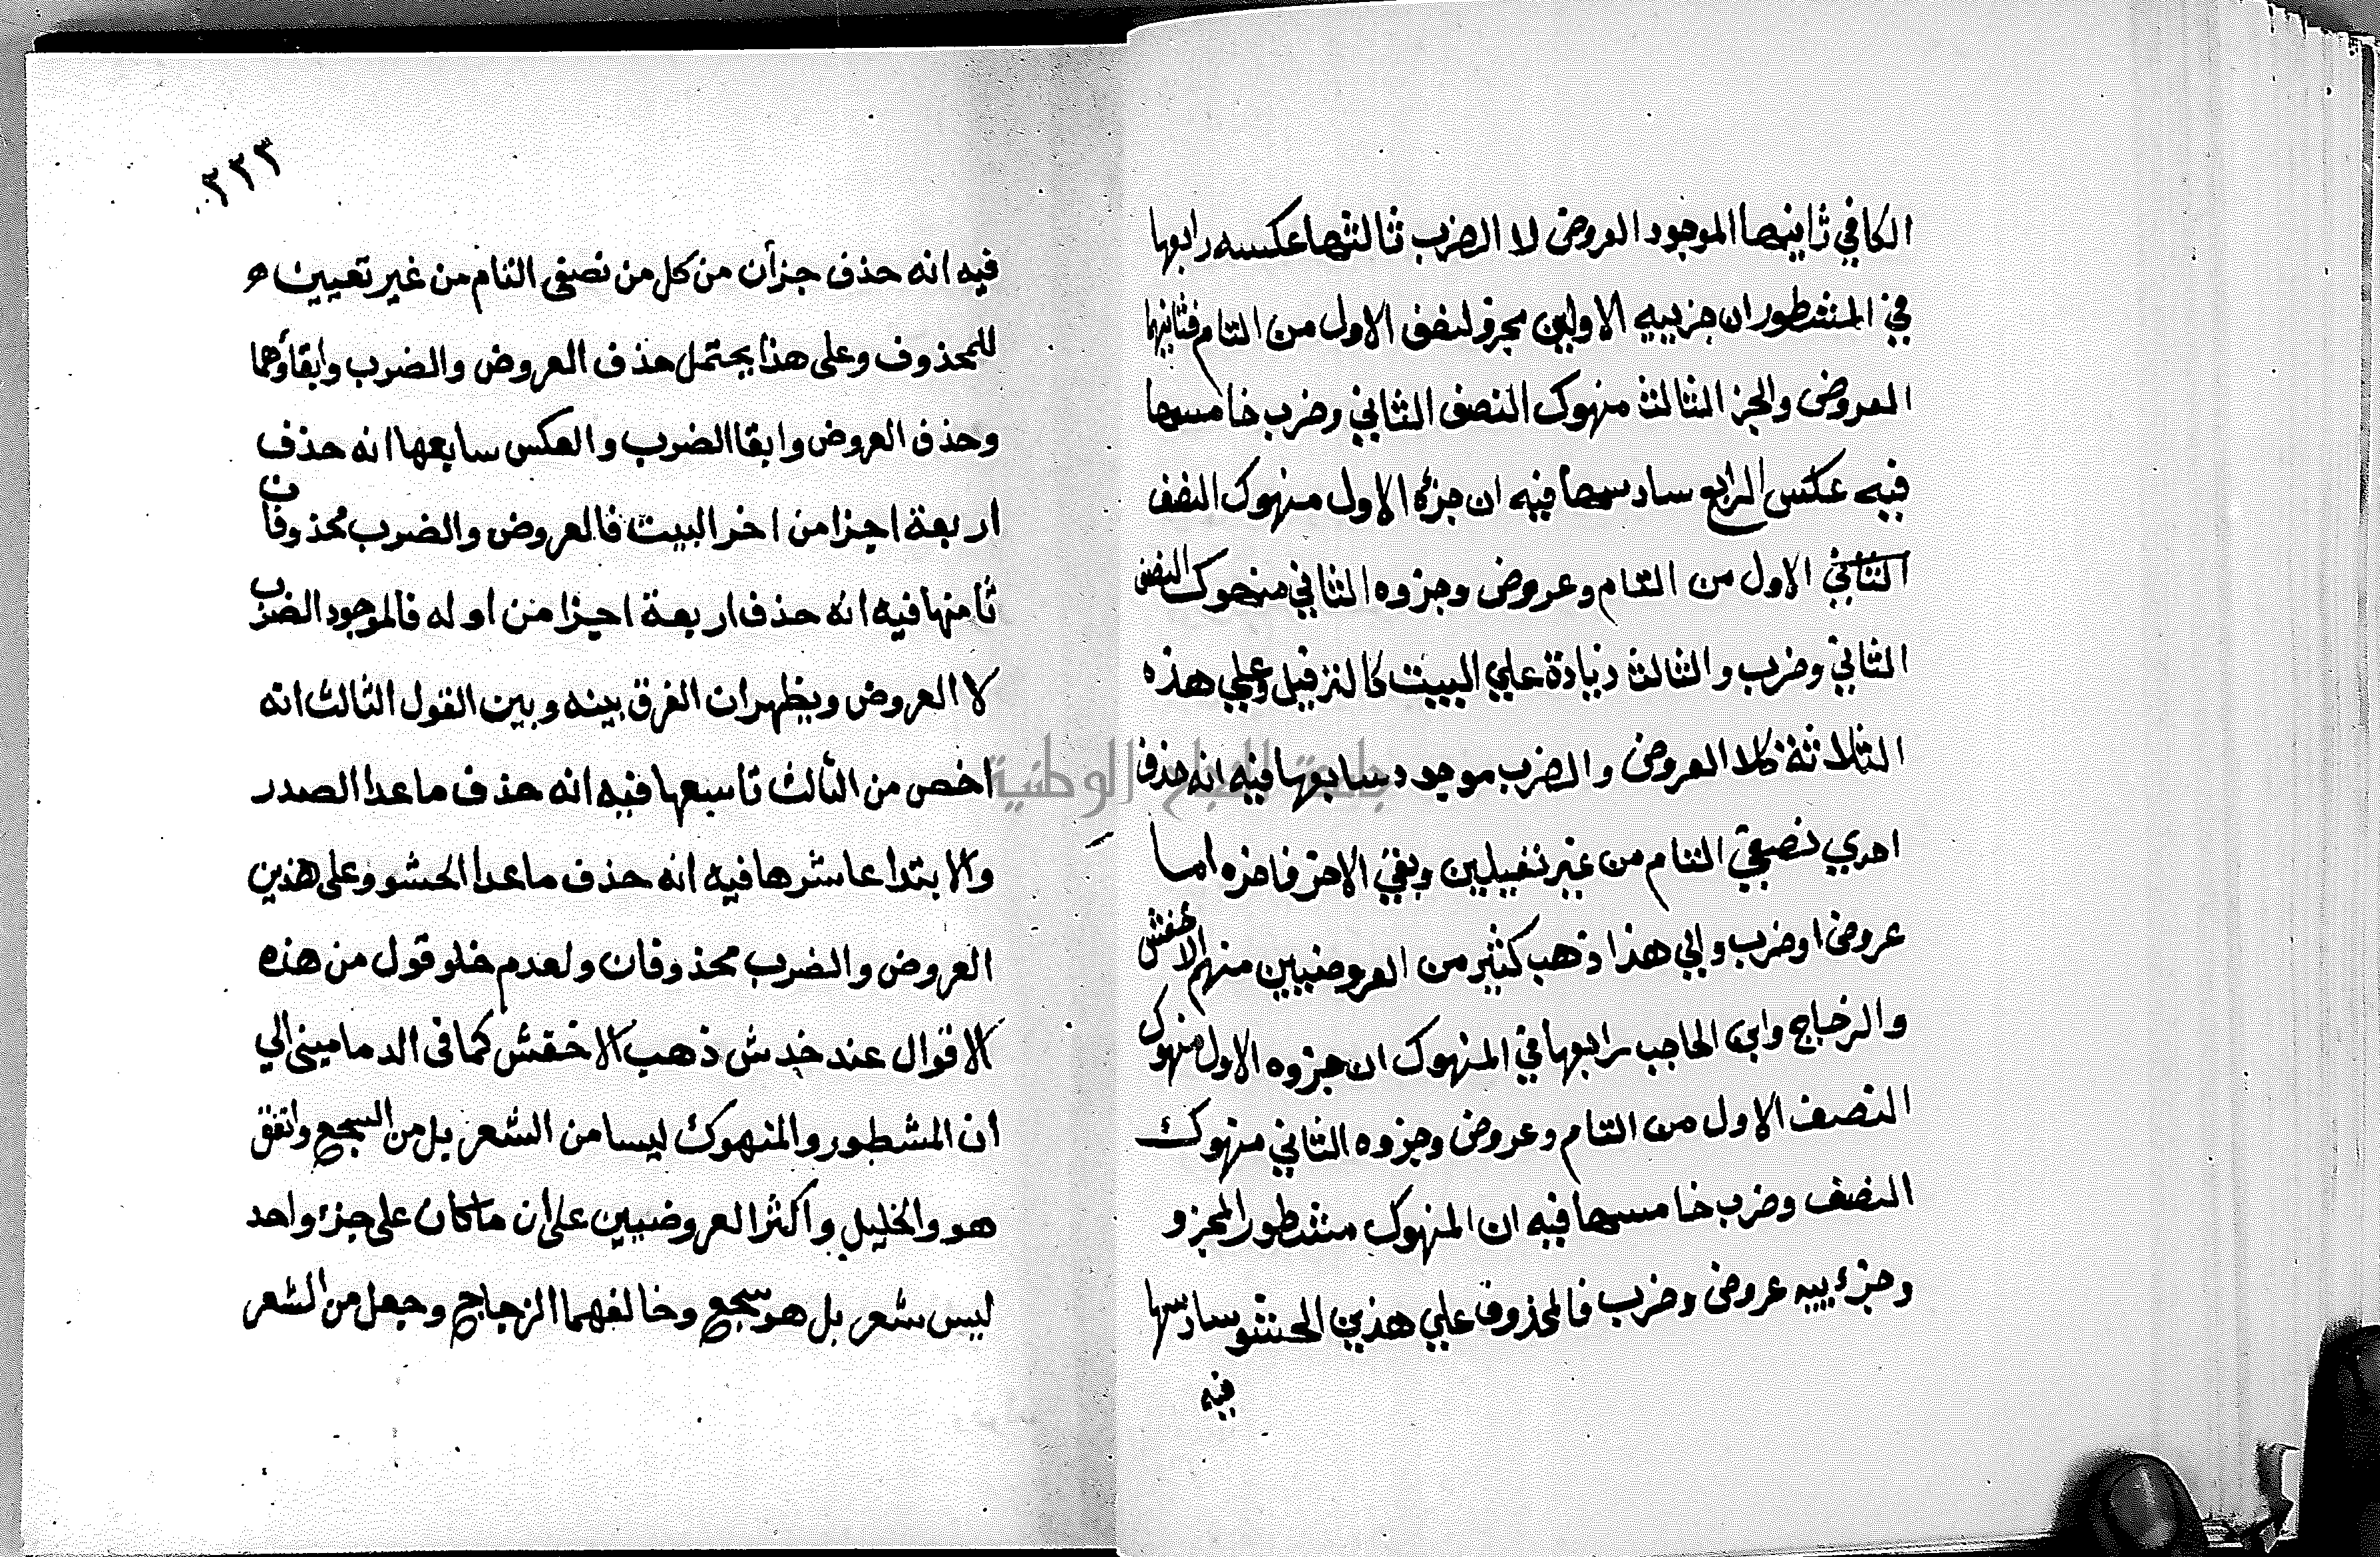 الكافي ثانيها الموجود العروض لا الضرب ثالثها عكسه رابعها
في المشطور ان جزييه الاولين مجزو لنصف الاول من التام فثانيهما
العروض والجز الثالث منهوك النصف الثاني وضرب خامسها
فيه عكس الرابع سادسها فيه ان جزؤه الاول منهوك النصف
الثاني الاول من التام وعروض وجزوه الثاني منهوك النصف
الثاني وضرب والثالث زيادة علي البيت كالترفيل وعلي هذه
الثلاثة فكلا العروض والضرب موجود سابعها فيه انه حذف
احدي نصفي التام من غير تعيين وبقي الاخر فاخره اما
عروض او ضرب والي هذا ذهب كثير من العروضيين منهم الاخفش
والزجاج وابن الحاجب رابعها في المنهوك ان جزوه الاول منهوك
النصف الاول من التام وعروض وجزوه الثاني منهوك
النصف وضرب خامسها فيه ان المنهوك مشطور المجزو
وجزءييه عروض وضرب فالمحذوف علي هذين الحشو سادسها
فيه
٢٢٣
فيه انه حذف جزأن من كل من نصفى التام من غير تعيين
للمحذوف وعلى هذا يحتمل حذف العروض والضرب وابقاؤهما
وحذف العروض وابقا الضرب والعكس سابعها انه حذف
اربعة اجزا من اخر البيت فالعروض والضرب محذوفان
ثامنها فيه انه حذف اربعة اجزا من اوله فالموجود الضرب
لا العروض ويظهر ان الفرق بينه وبين القول الثالث انه
اخص من الثالث تاسعها فيه انه حذف ماعدا الصدر
والابتدا عاشرها فيه انه حذف ماعدا الحشو وعلى هذين
العروض والضرب محذوفان ولعدم خلو قول من هذه
الاقوال عند خدش ذهب الاخفش كما فى الدمامينى الي
ان المشطور والمنهوك ليسا من الشعر بل من السجع واتفق
هو والخليل واكثر العروضيين على ان ما كان على جزء واحد
ليس شعر بل هو سجع وخالفهما الزجاج وجعل من الشعر
جامعة النجاح الوطنية